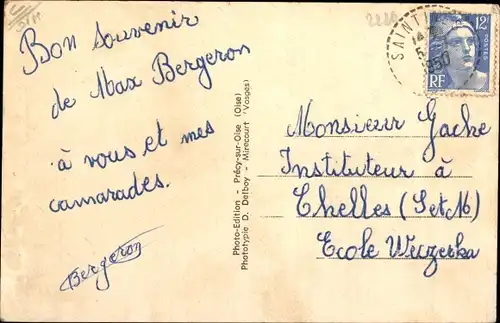 Bon souvenir
de Max Bergeron
à vous et mes
camarades.
Bergeron
Photo-Edition - Précy-sur-Oise (Oise)
Phototypie D. Delboy - Mirecourt (Vosges)
SAINT
1950
12F
POSTES
RF
Monsieur Gache
Instituteur à
Chelles (S et M)
Ecole Weczerka